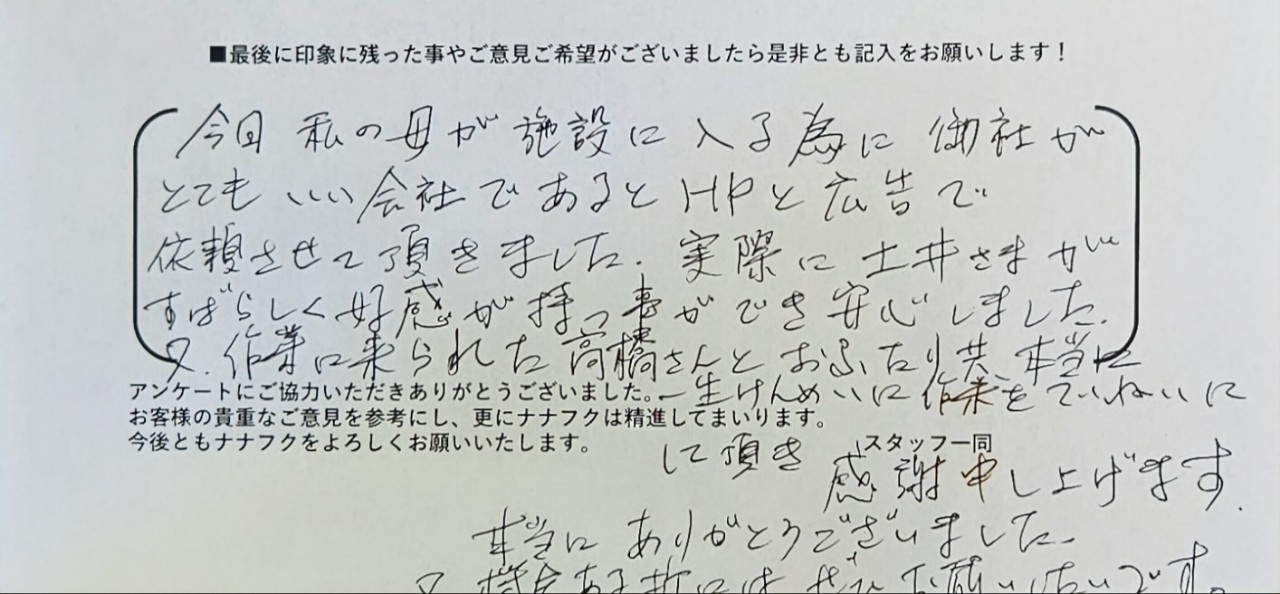 ■最後に印象に残った事やご意見ご希望がございましたら是非とも記入をお願いします！
今回 私の母が施設に入る為に 御社が
とても いい会社であると HPと広告で
依頼させて頂きました. 実際に土井さまが
すばらしく好感が持つ事ができ安心しました.
又. 作業に来られた高橋さんとおふたり共. 本当に
アンケートにご協力いただきありがとうございました。
一生けんめいに作業をていねいに
お客様の貴重なご意見を参考にし、更にナナフクは精進してまいります。
今後ともナナフクをよろしくお願いいたします。
スタッフ一同
して頂き
感謝申し上げます.
本当にありがとうございました.
又 機会ある折には ぜひお願いしたいです。